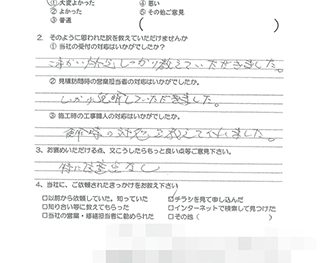 ①大変よかった ④悪い
②よかった ⑤その他ご意見
③普通 (
2. そのように思われた訳を教えていただけませんか
① 当社の受付の対応はいかがでしたか?
しっかり教えていただきました。
② 見積訪問時の営業担当者の対応はいかがでしたか。
しっかり説明していただきました。
③ 施工時の工事職人の対応はいかがでしたか?
教えてくれました。
3. お褒めいただける点、又こうしたらもっと良い点等ご意見下さい。
特に注意点なし
4. 当社に、ご依頼されたきっかけをお教え下さい
□以前から依頼していた。知っていた ☑チラシを見て申し込んだ
□知り合い等に教えてもらった □インターネットで検索して見つけた
□当社の営業・修繕担当者に勧められた □その他 (